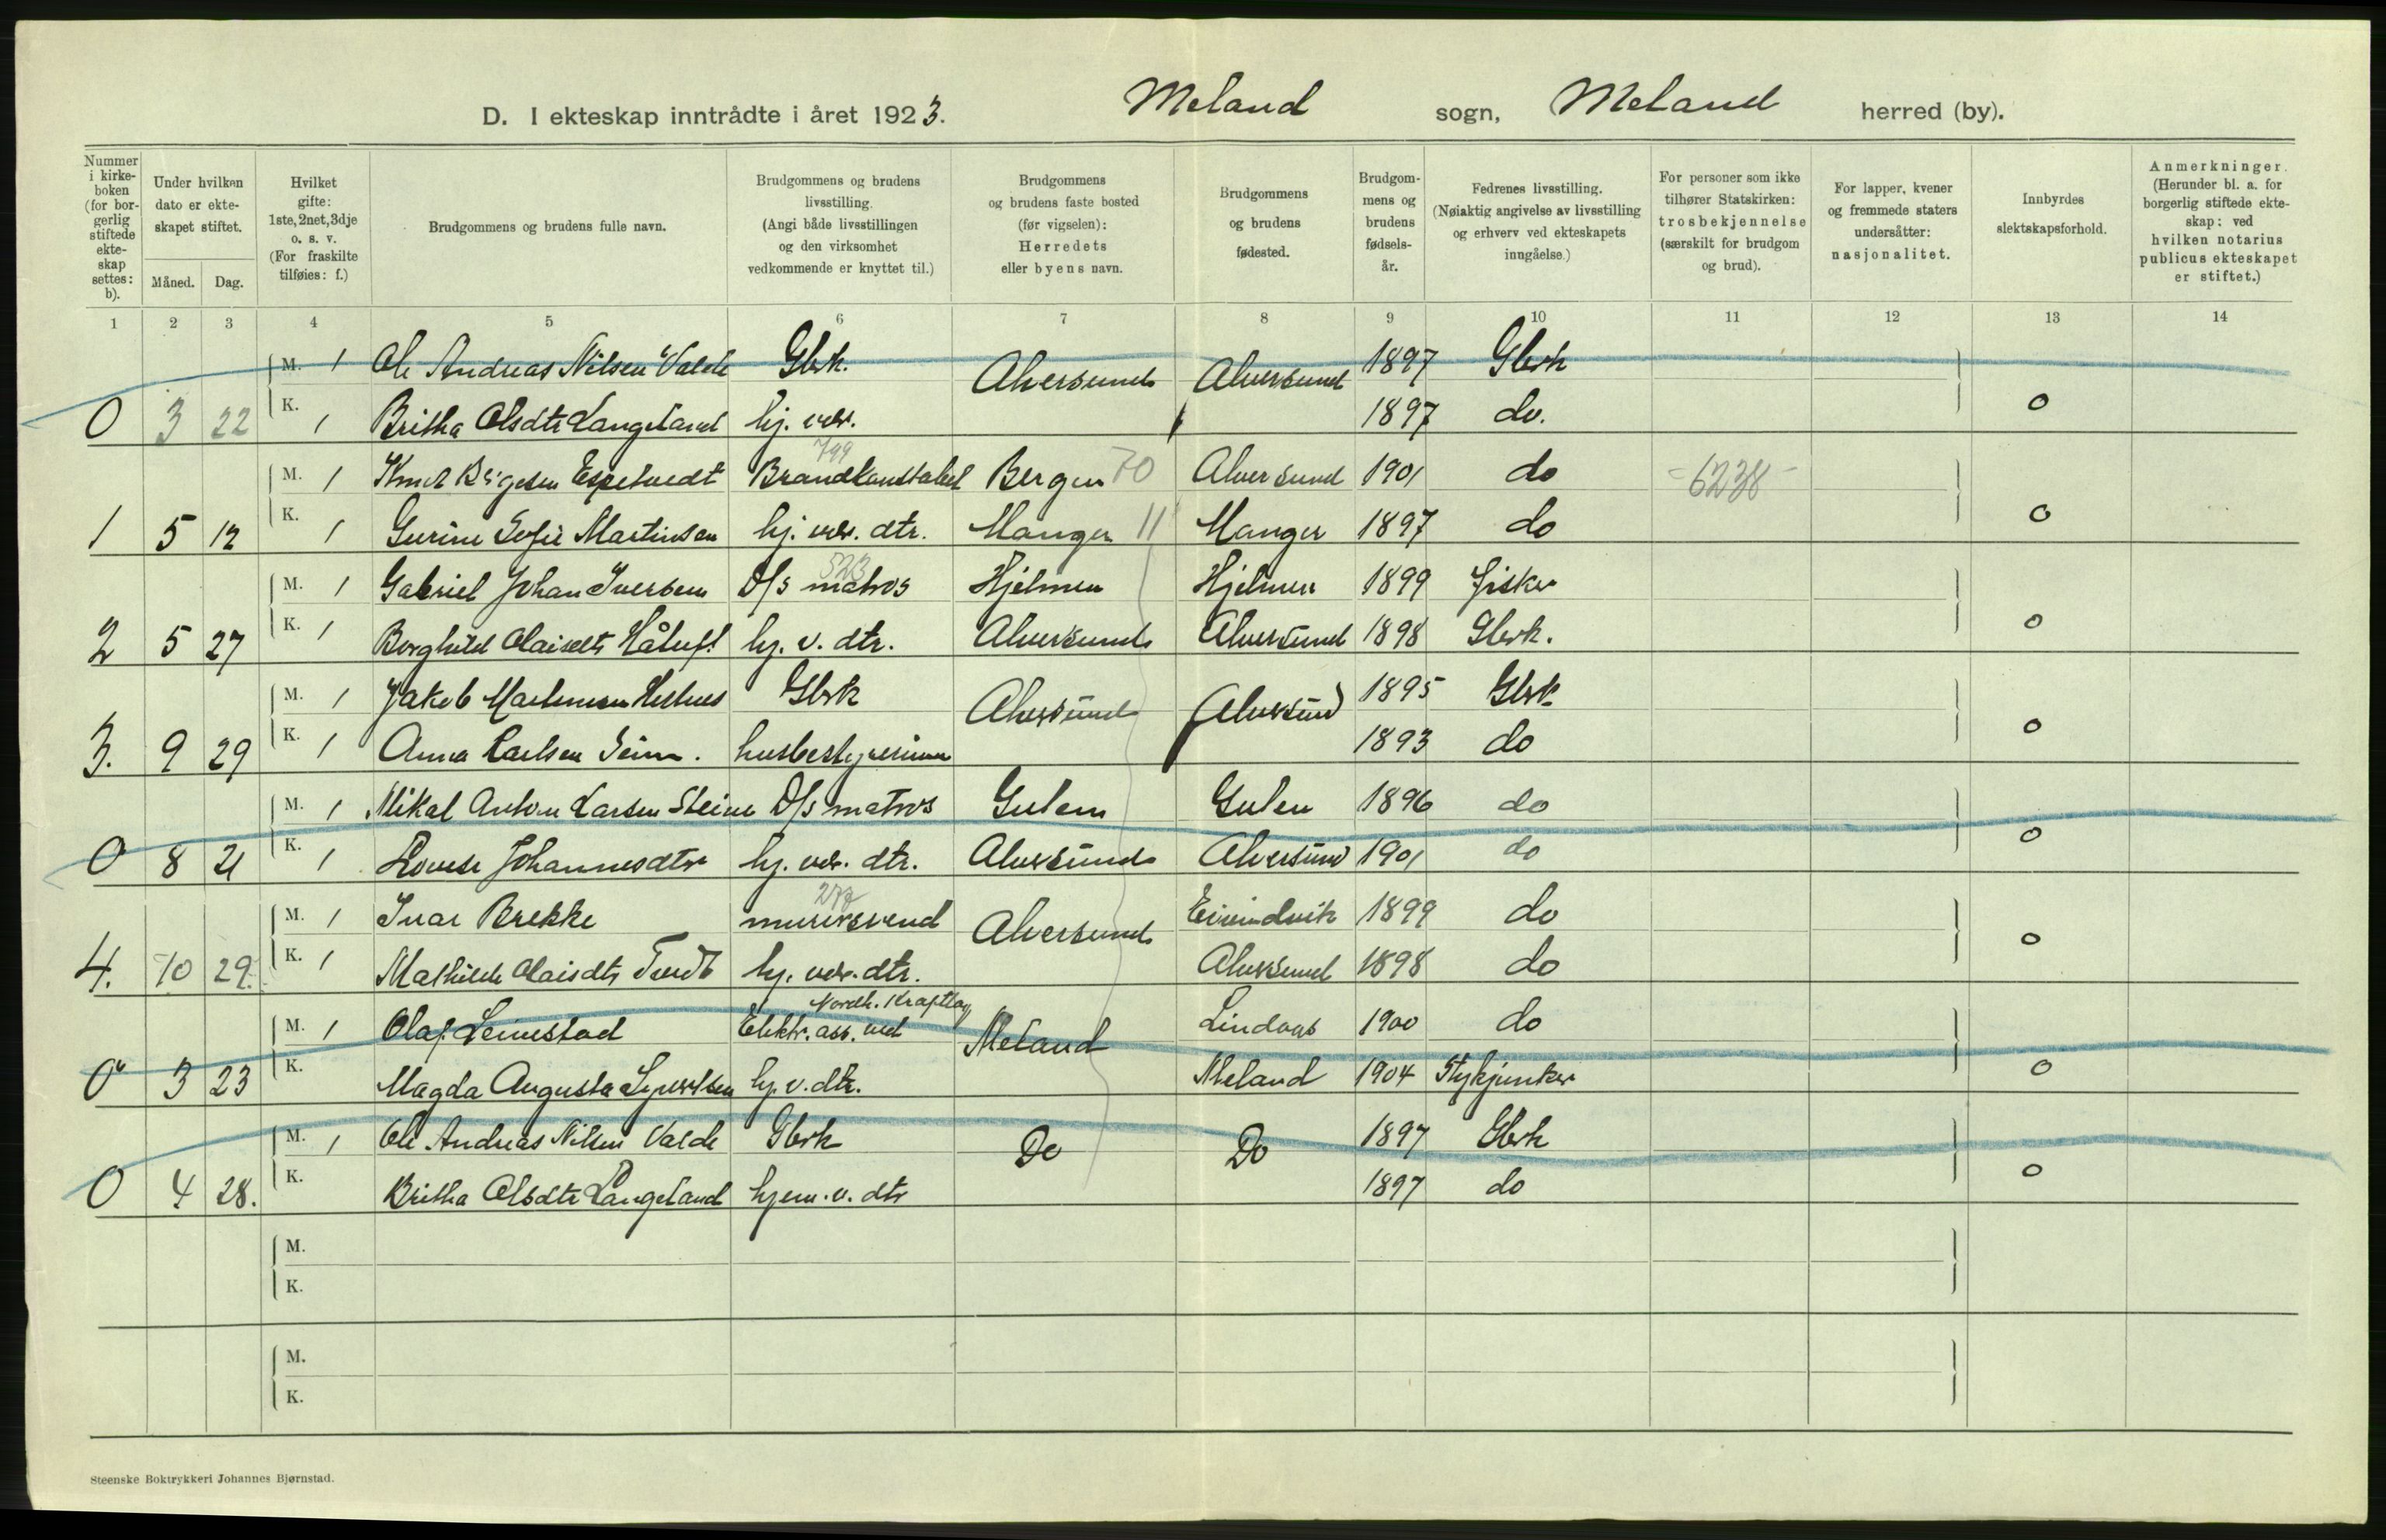 D. I ekteskap inntrådte i året 1923. Meland sogn, Meland herred (by).
Nummer i kirke-boken (for bor-gerlig stiftede ekte-skap settes: b).
Under hvilken dato er ekte-skapet stiftet.
Måned. Dag.
Hvilket gifte: 1ste, 2net, 3dje o. s. v. (For fraskilte tilføies: f.)
Brudgommens og brudens fulle navn.
Brudgommens og brudens livsstilling. (Angi både livsstillingen og den virksomhet vedkommende er knyttet til.)
Brudgommens og brudens faste bosted (før vigselen): Herredets eller byens navn.
Brudgommens og brudens fødested.
Brudgom-mens og brudens fødsels-år.
Fedrenes livsstilling. (Nøiaktig angivelse av livsstilling og erhverv ved ekteskapets inngåelse.)
For personer som ikke tilhører Statskirken: trosbekjennelse (særskilt for brudgom og brud).
For lapper, kvener og fremmede staters undersåtter: nasjonalitet.
Innbyrdes slektskapsforhold.
Anmerkninger. (Herunder bl. a. for borgerlig stiftede ekte-skap: ved hvilken notarius publicus ekteskapet er stiftet.)
1 2 3 4 5 6 7 8 9 10 11 12 13 14
M. 1 Ole Andreas Nilsen Valde Gbrk. Alversund Alversund 1897 Gbrk
0 3 22 K. 1 Britha Olsdtr Langeland hj.ver. 1897 do. 0
799
M. 1 Knut Espetvedt Brandkonstabel Bergen 70 Alversund 1901 do -6238-
1 5 12 K. 1 Gurine Sofie Martinsen hj. ver. dtr. Manger 11 Manger 1897 do 0
523
M. 1 Gabriel Johan Iversen D/s matros Hjelmen Hjelmen 1899 Fisker
2 5 27 K. 1 Borghild Olaisdtr hj. v. dtr. Alversund Alversund 1898 Gbrk. 0
M. 1 Jakob Martinsen Gbrk Alversund Alversund 1895 Gbrk
3. 9 29 K. 1 Anna Karlsen Seim. husbestyrerinne 1893 do 0
M. 1 Mikal Anton Larsen Steine D/s matros Gulen Gulen 1896 do
0 8 21 K. 1 Lovise Johannesdtr hj. ver. dtr. Alversund Alversund 1901 do 0
277
M. 1 Ivar Brekke murersvend Alversund Eivindvik 1899 do
4. 10 29. K. 1 Mathilde Olaisdtr Tvedt hj. ver. dtr. Alversund 1898 do 0
Nordh. Kraftlag
M. 1 Olaf Leinestad Elektr. ass. ved Meland Lindaas 1900 do
0 3 23 K. Magda Augusta Syvertsen hj. v. dtr. Meland 1904 Stykjunker 0
M. 1 Ole Andreas Nilsen Valde Gbrk Do Do 1897 Gbrk
0 4 28. K. Britha Olsdtr Langeland hjem. v. dtr 1897 do 0
M.
K.
M.
K.
Steenske Boktrykkeri Johannes Bjørnstad.